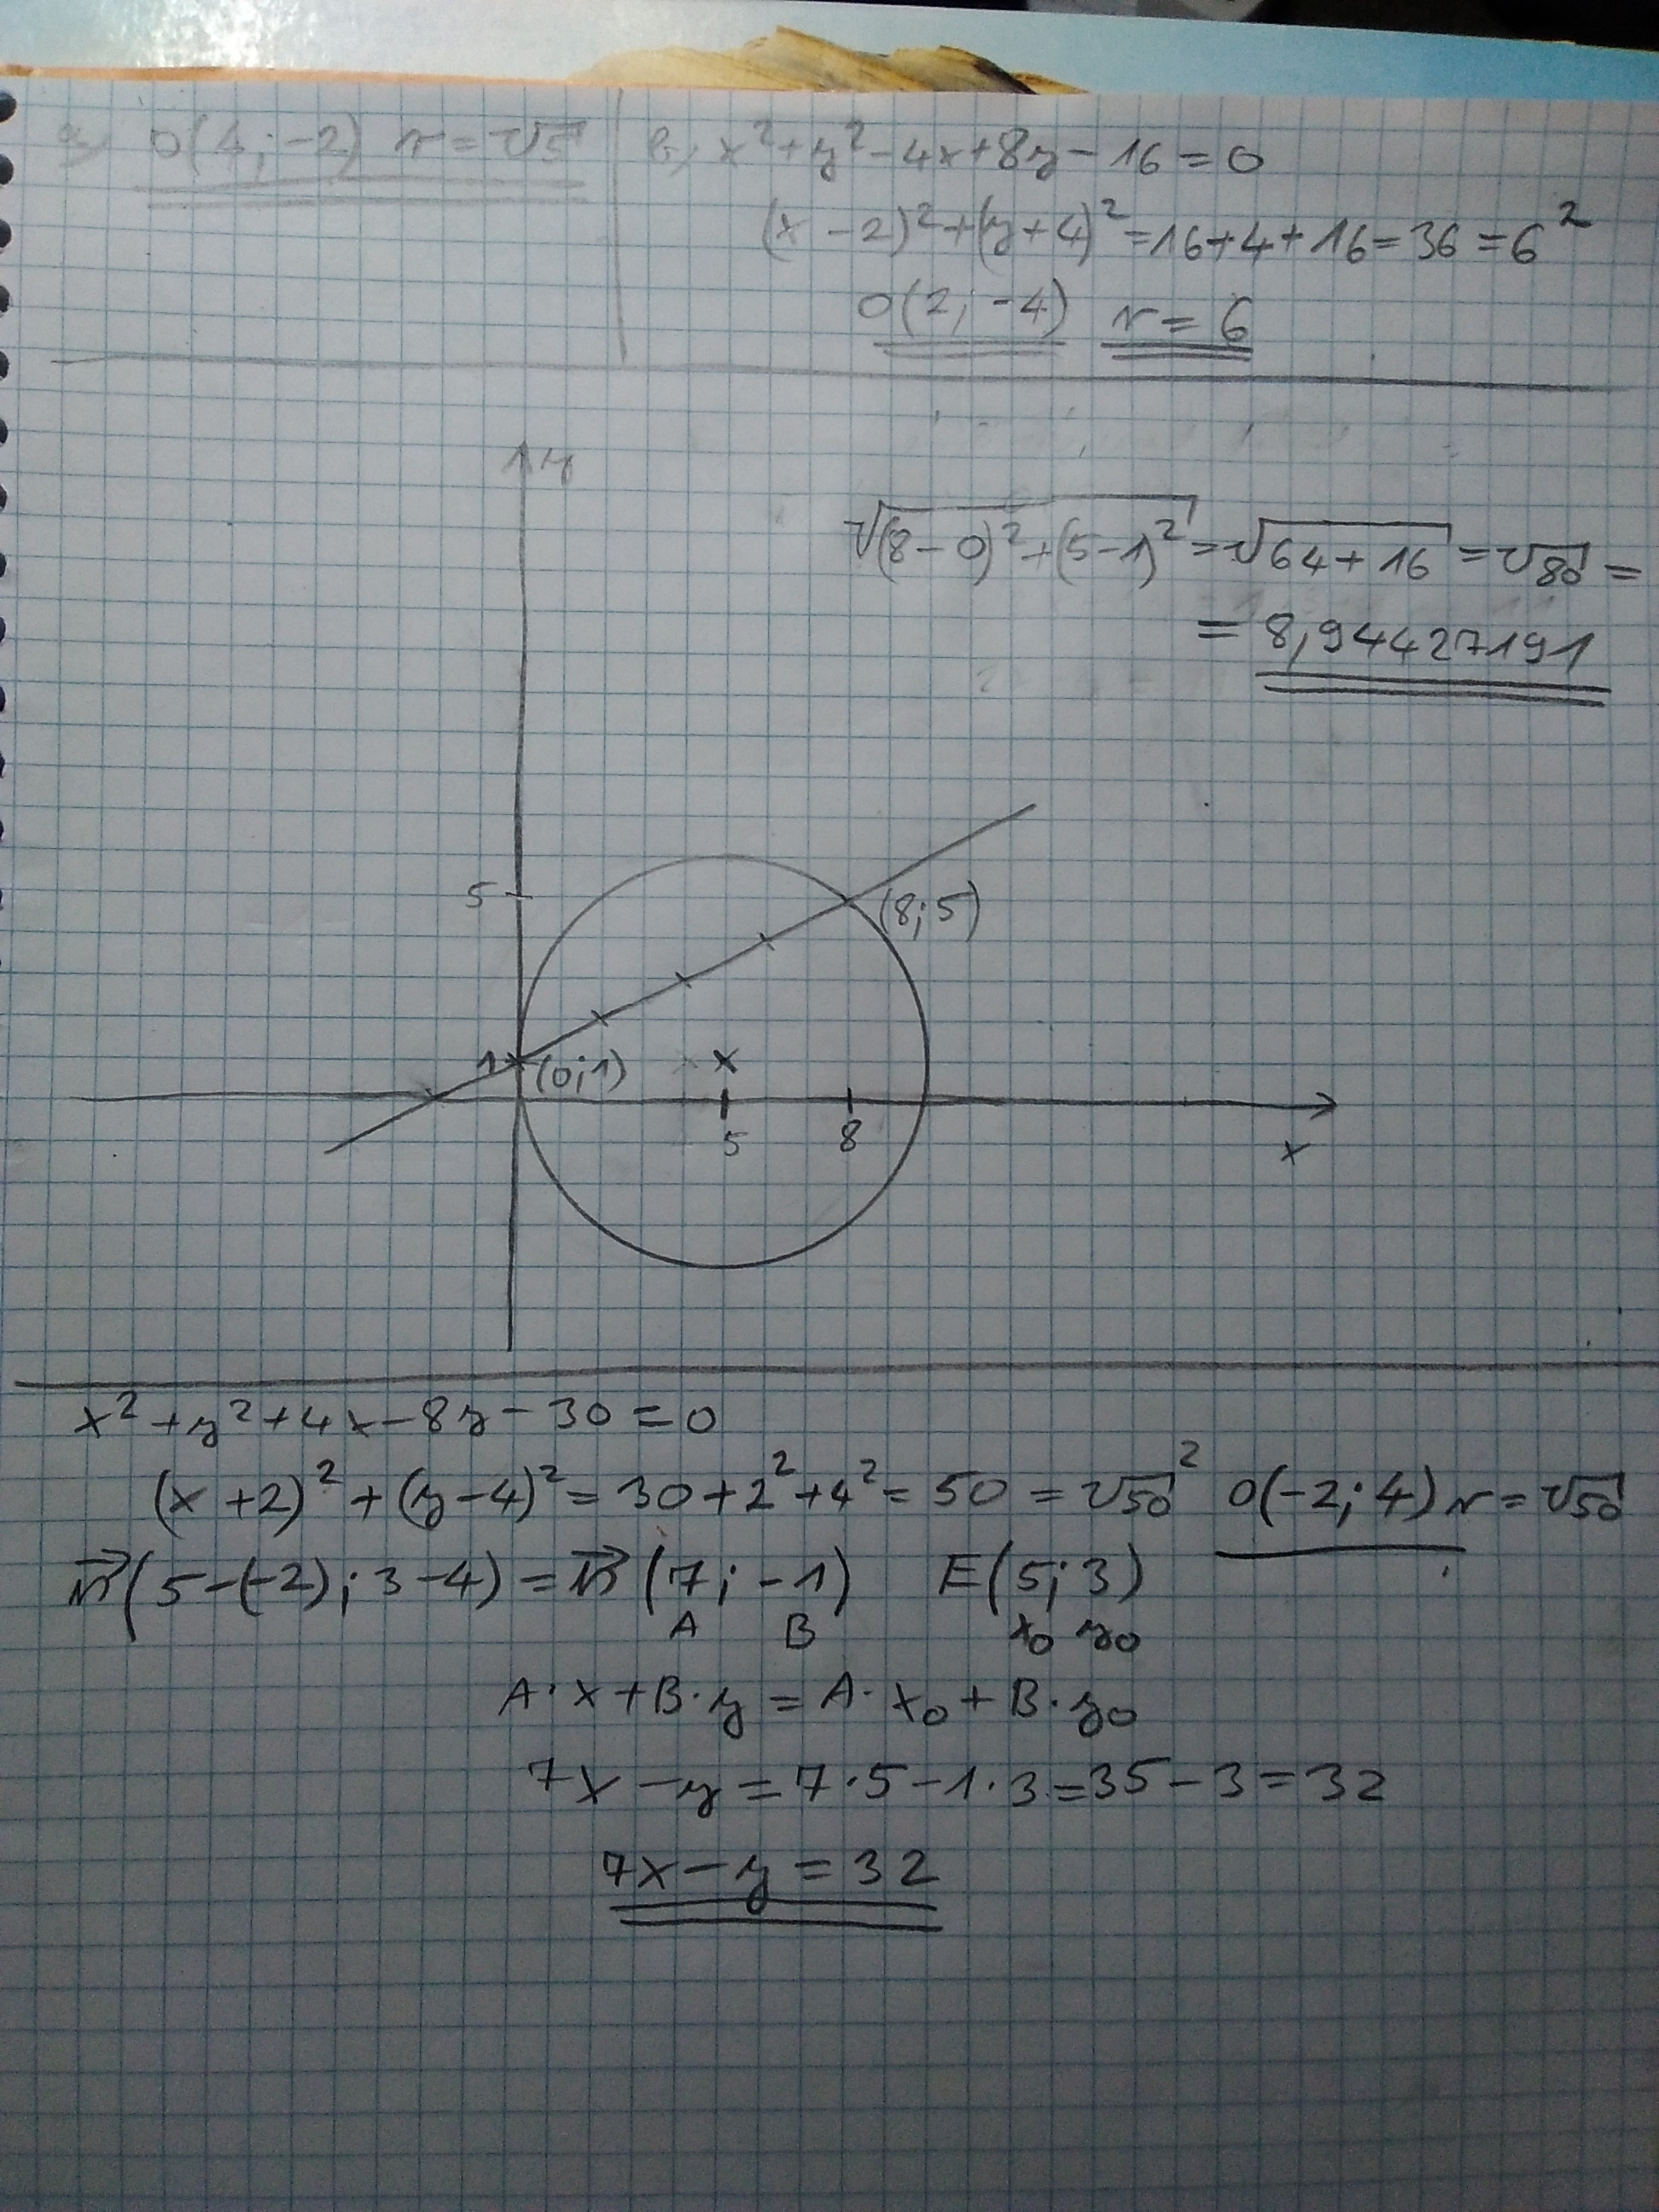 a) O(4; -2) r = √5
b) x² + y² - 4x + 8y - 16 = 0
(x - 2)² + (y + 4)² = 16 + 4 + 16 = 36 = 6²
O(2; -4) r = 6
y
√(8 - 0)² + (5 - 1)² = √64 + 16 = √80 =
= 8,94427191
5
(8; 5)
1 (0; 1)
5 8
x
x² + y² + 4x - 8y - 30 = 0
(x + 2)² + (y - 4)² = 30 + 2² + 4² = 50 = √50² O(-2; 4) r = √50
n⃗(5 - (-2); 3 - 4) = n⃗(7; -1) E(5; 3)
A B x₀ y₀
A · x + B · y = A · x₀ + B · y₀
7x - y = 7 · 5 - 1 · 3 = 35 - 3 = 32
7x - y = 32